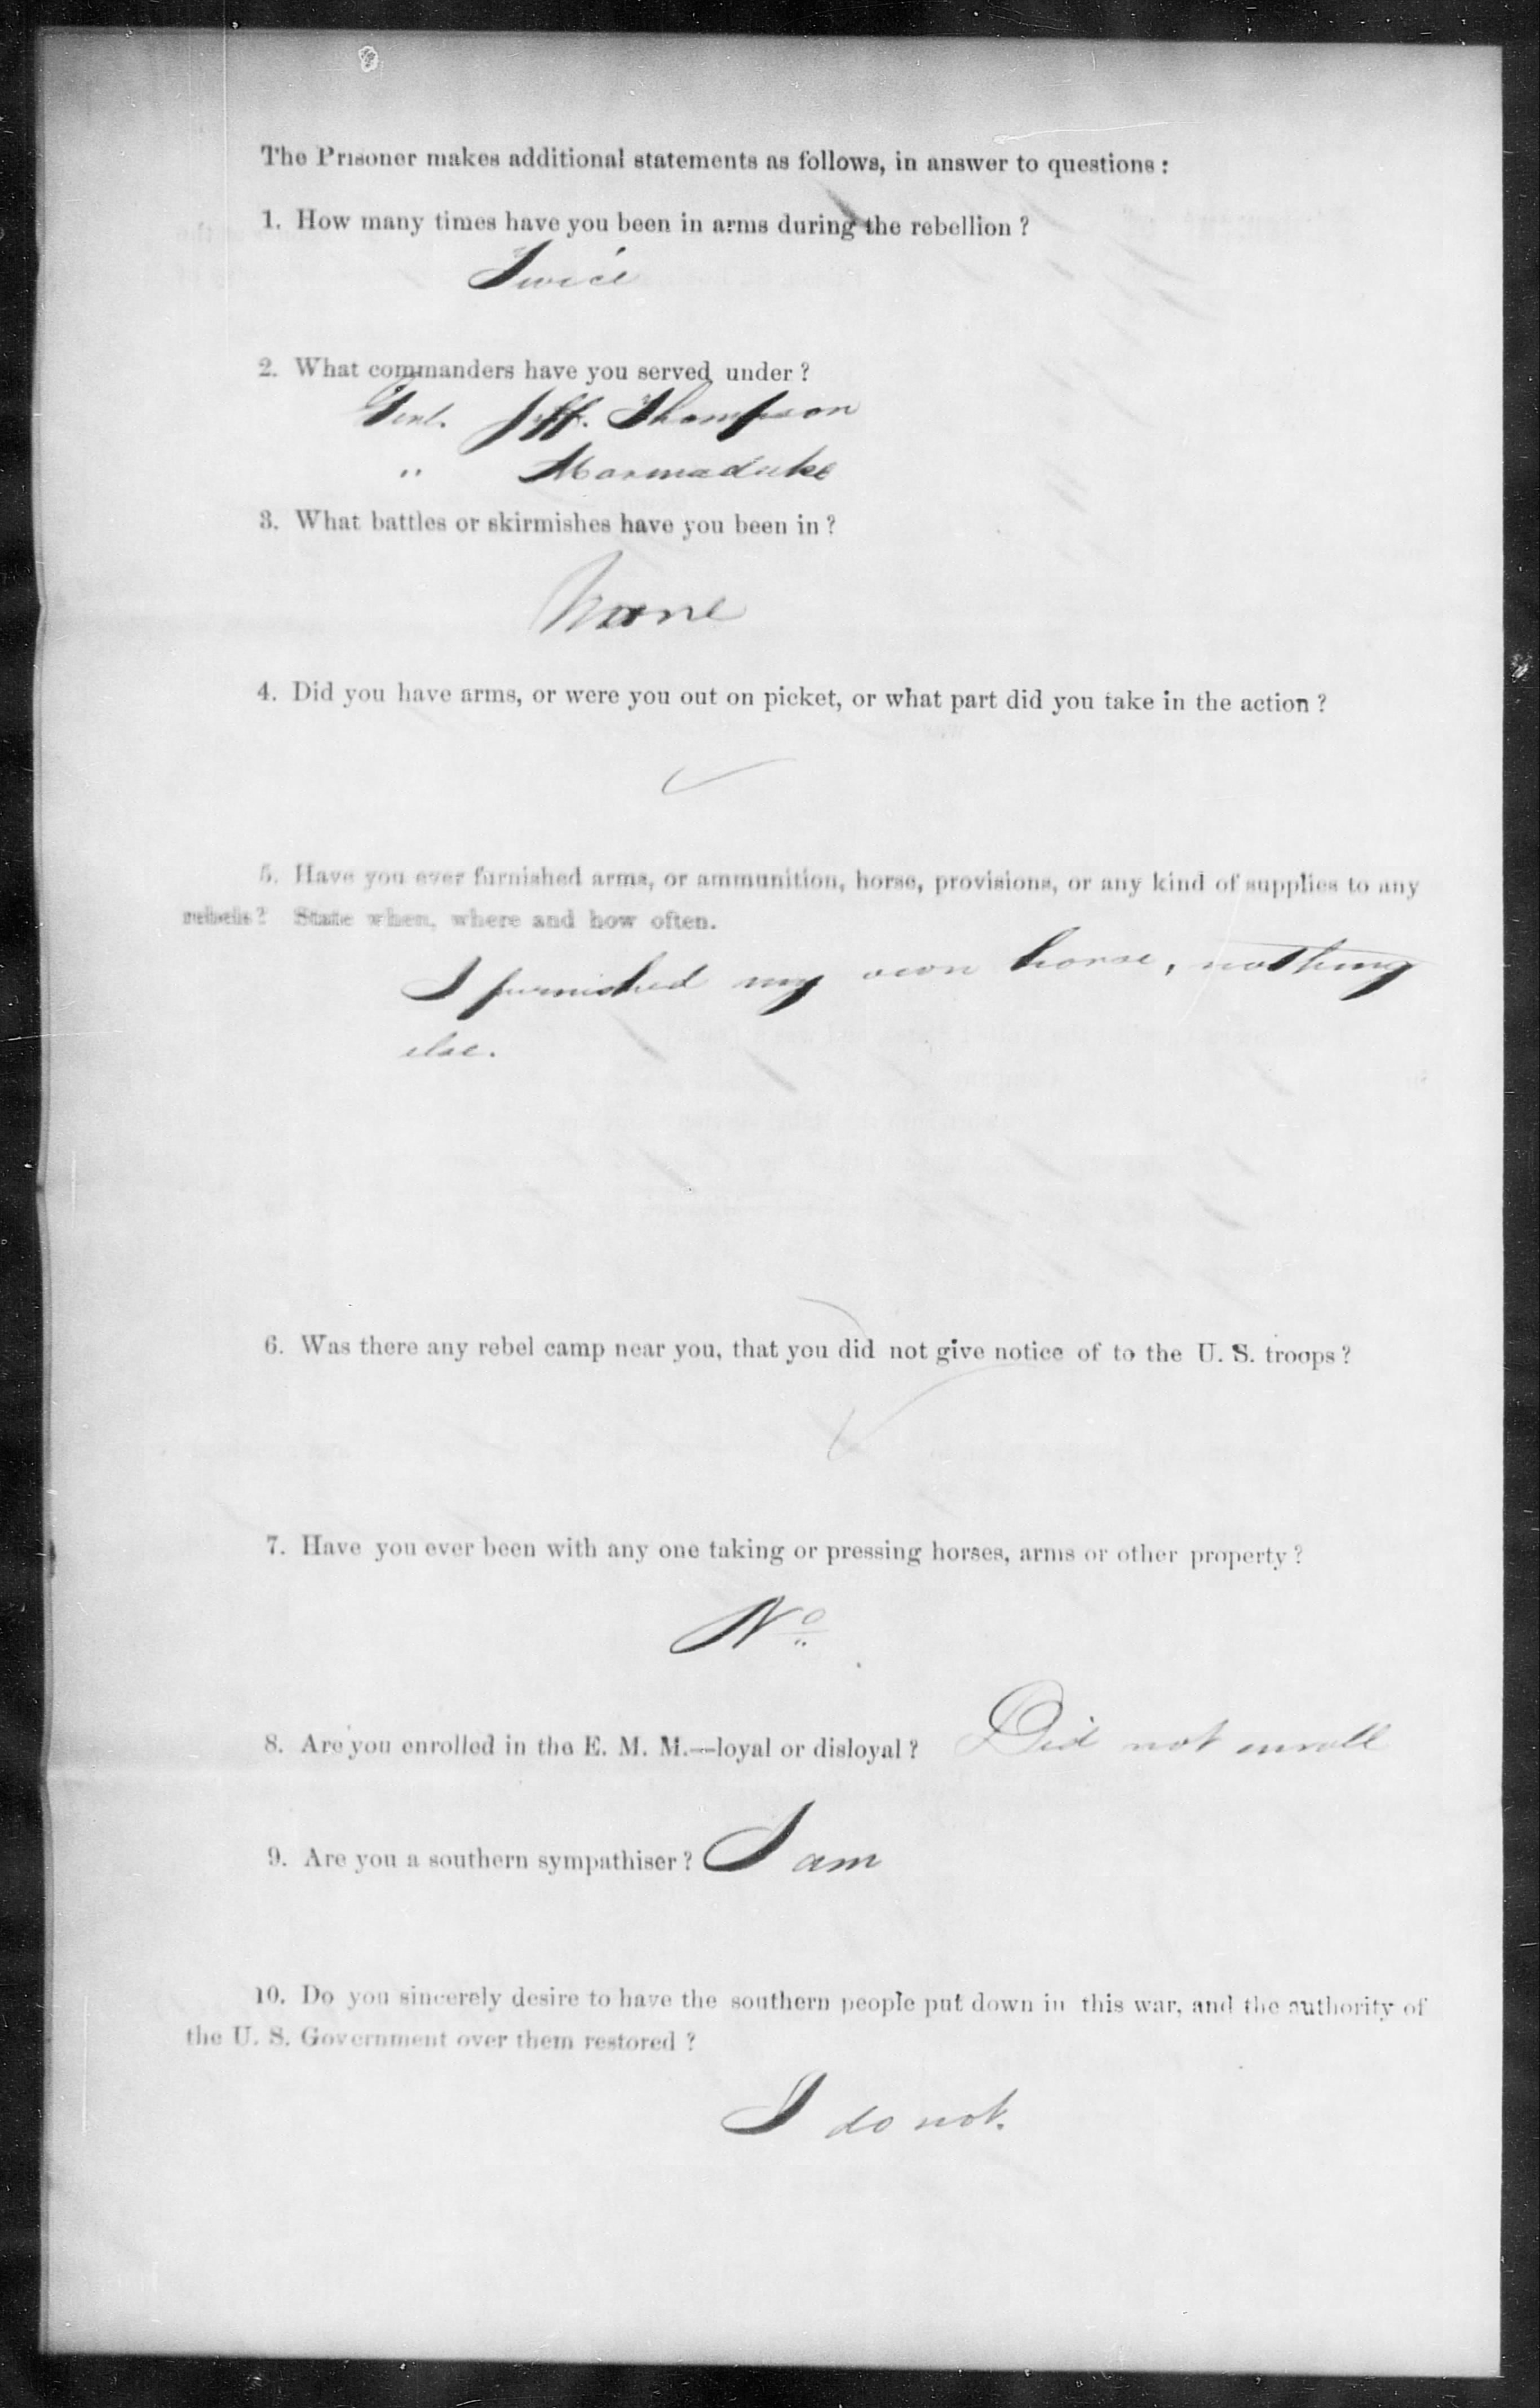 The Prisoner makes additional statements as follows, in answer to questions :
1. How many times have you been in arms during the rebellion ?
Twice
2. What commanders have you served under ?
Genl. Jeff. Thompson
" Marmaduke
3. What battles or skirmishes have you been in ?
None
4. Did you have arms, or were you out on picket, or what part did you take in the action ?
5. Have you ever furnished arms, or ammunition, horse, provisions, or any kind of supplies to any
rebels ? State when, where and how often.
I furnished my own horse, nothing
else.
6. Was there any rebel camp near you, that you did not give notice of to the U. S. troops ?
7. Have you ever been with any one taking or pressing horses, arms or other property ?
No
8. Are you enrolled in the E. M. M.—loyal or disloyal ? Did not enroll
9. Are you a southern sympathiser ? I am
10. Do you sincerely desire to have the southern people put down in this war, and the authority of
the U. S. Government over them restored ?
I do not.